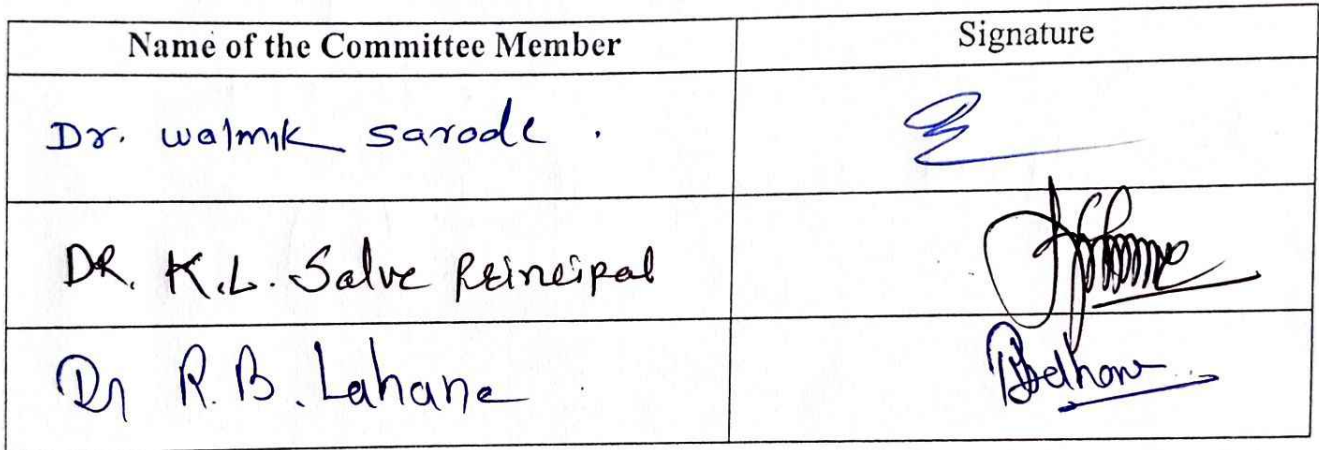 Name of the Committee Member Signature
Dr. walmik sarode .
DR. K.L. Salve Principal
Dr R.B. Lahane